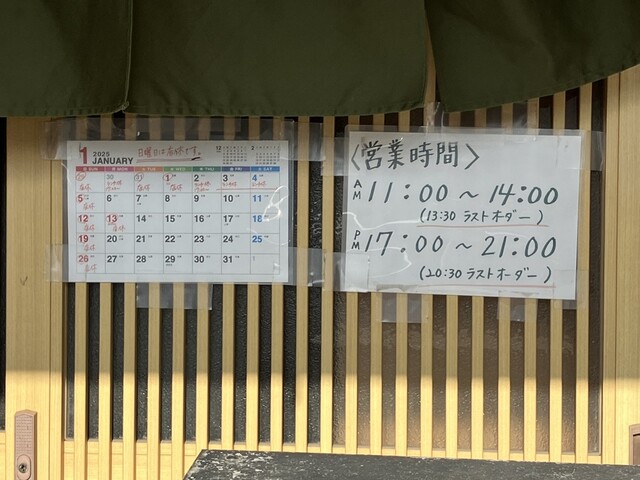 1 2025 JANUARY
日曜日は店休です。
日 SUN 月 MON 火 TUE 水 WED 木 THU 金 FRI 土 SAT
30 1 2 3 4
店休 店休
5 6 7 8 9 10 11
店休
12 13 14 15 16 17 18
店休 店休
19 20 21 22 23 24 25
店休
26 27 28 29 30 31 1
店休
〈営業時間〉
AM 11:00 ~ 14:00
(13:30 ラストオーダー)
PM 17:00 ~ 21:00
(20:30 ラストオーダー)